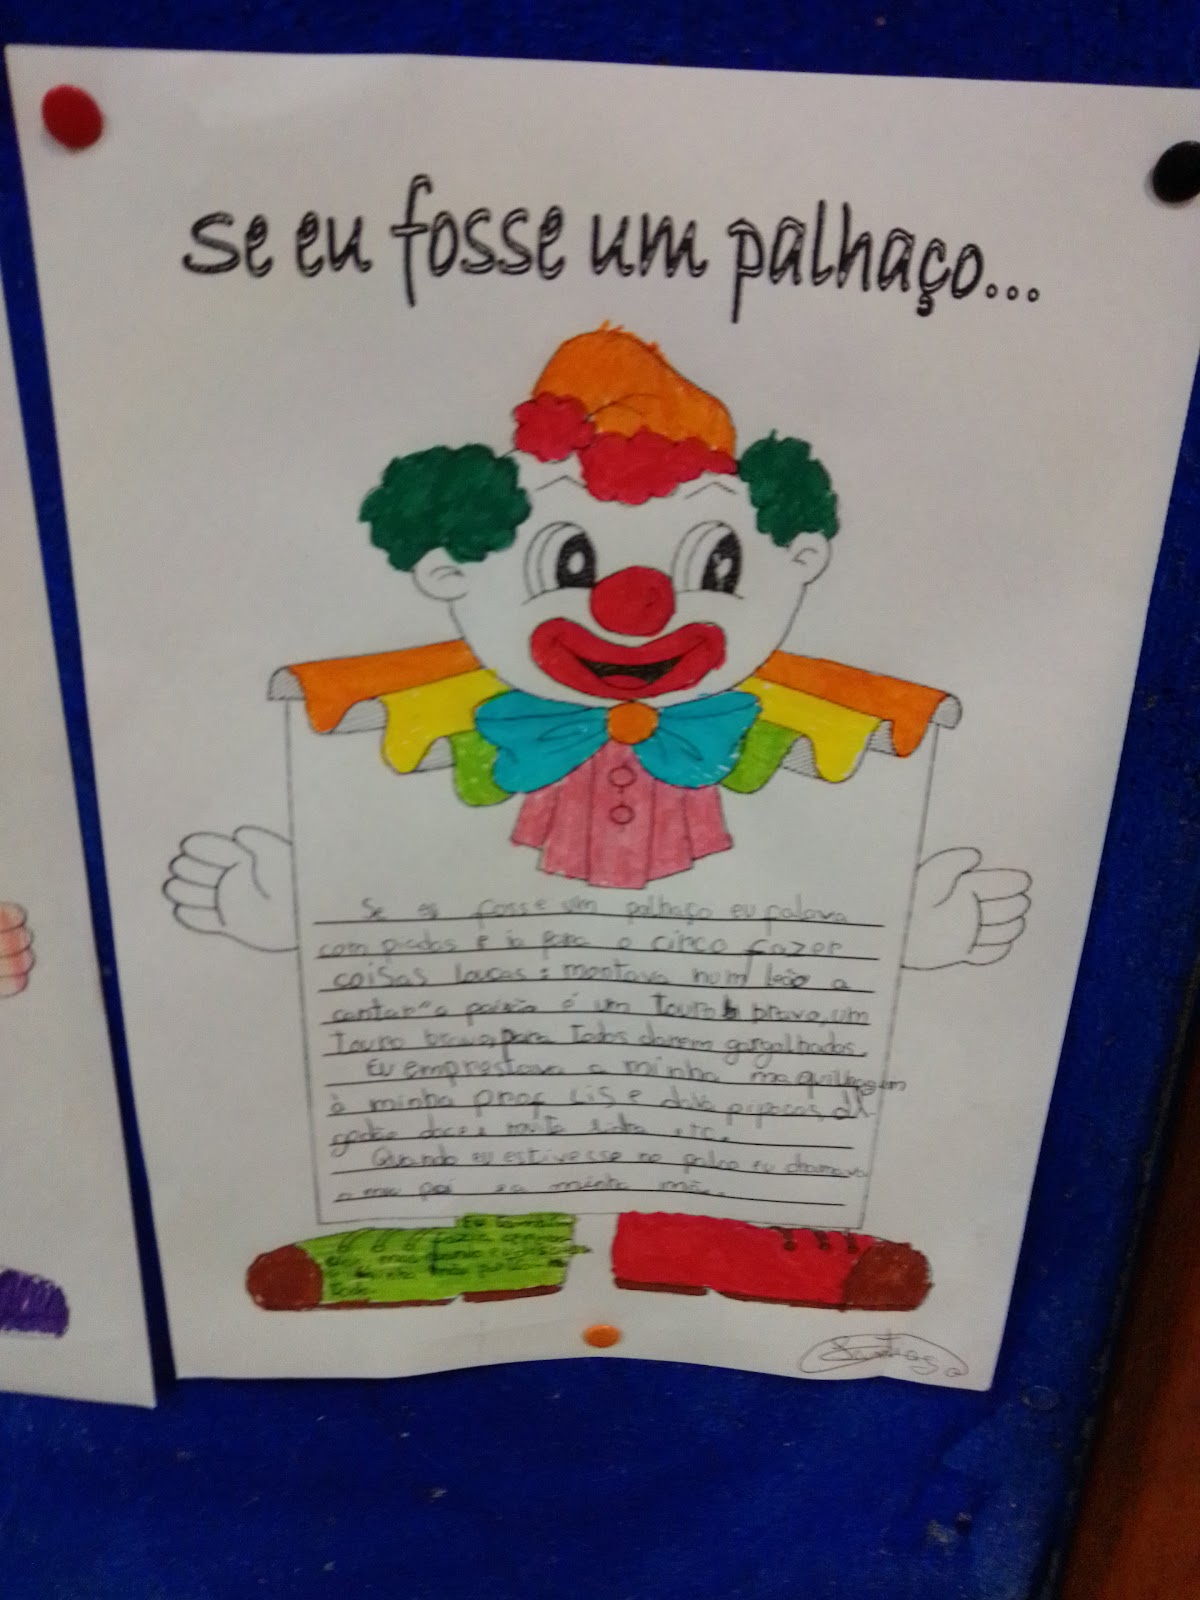 Se eu fosse um palhaço...
Se eu fosse um palhaço eu falava
com piadas e ia para o circo fazer
coisas loucas: montava num leão a
cantar "a paixão é um touro bravo, um
touro bravo, para todos darem gargalhadas.
Eu emprestava a minha maquilhagem
à minha prof Lis e dava pipocas, al-
godão doce e muita etc.
Quando eu estivesse no palco eu chamava
o meu pai e a minha mãe.
Eu também
fazia
Santiago